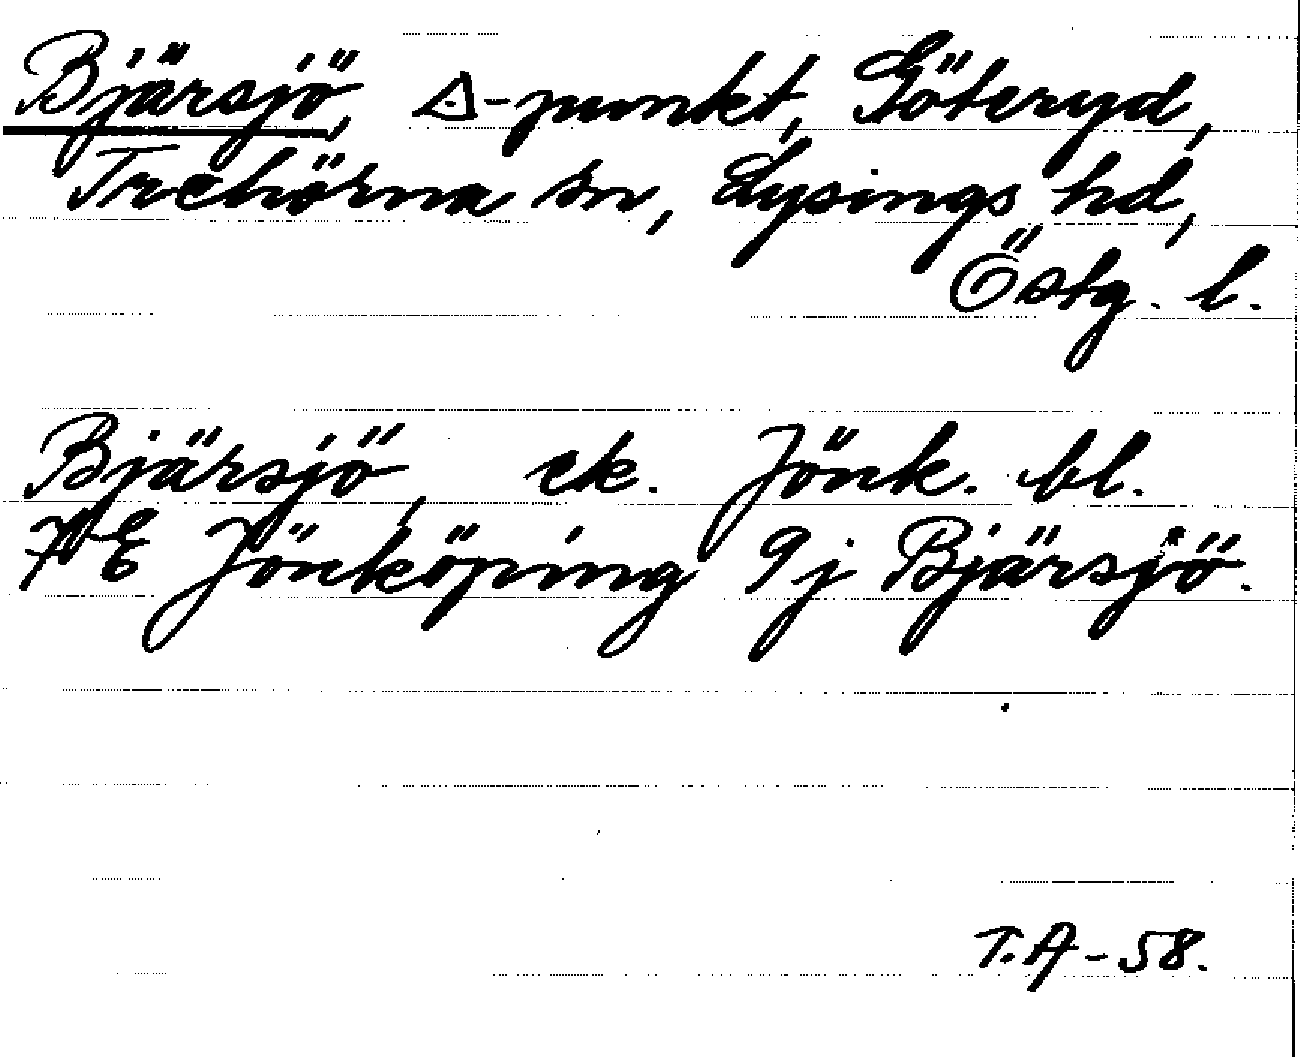 Bjärsjö, △-punkt, Göteryd,
Trehörna sn, Lysings hd,
Östg. l.
Bjärsjö, ek. Jönk. bl.
7E Jönköping 9j Bjärsjö.
T.A-58.